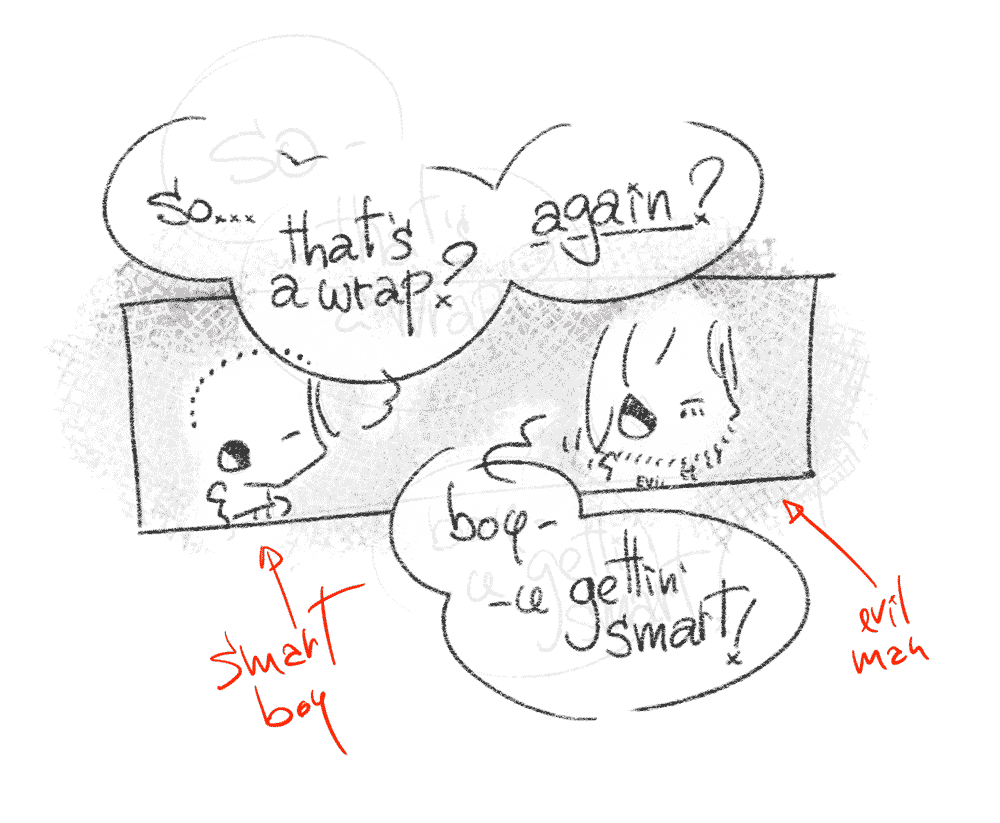 So...
that's
a wrap?
again?
EVIL
boy-
-u gettin'
smart!
smart
boy
evil
man